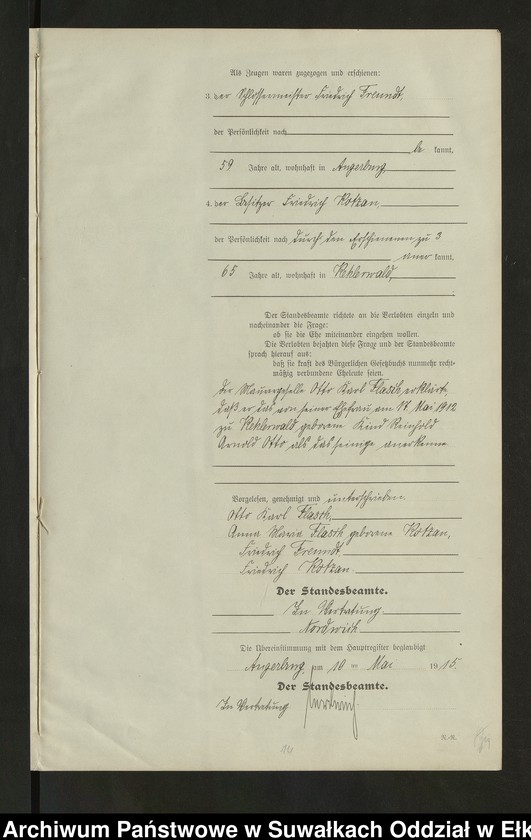 Als Zeugen waren zugezogen und erschienen:
3. der Schlossermeister Friedrich Freundt,
der Persönlichkeit nach
be kannt,
59 Jahre alt, wohnhaft in Angerburg
4. der Besitzer Friedrich Kotzan
der Persönlichkeit nach durch den Erschienenen zu 3
aner kannt,
65 Jahre alt, wohnhaft in Kehlerwald,
Der Standesbeamte richtete an die Verlobten einzeln und
nacheinander die Frage:
ob sie die Ehe miteinander eingehen wollen.
Die Verlobten bejahten diese Frage und der Standesbeamte
sprach hierauf aus:
daß sie kraft des Bürgerlichen Gesetzbuchs nunmehr recht-
mäßig verbundene Eheleute seien.
Der Maurergeselle Otto Karl Flasch erklärt,
daß er das von seiner Ehefrau am 17. Mai 1912
zu Kehlerwald geborene Kind Reinhold
Arnold Otto als das seinige anerkenne
Vorgelesen, genehmigt und unterschrieben
Otto Karl Flasch,
Anna Maria Flasch geborene Kotzan,
Friedrich Freundt,
Friedrich Kotzan
Der Standesbeamte.
In Vertretung
Nordwich
Die Übereinstimmung mit dem Hauptregister beglaubigt
Angerburg, am 10 ten Mai 1915.
Der Standesbeamte.
In Vertretung
Nordwich
N.-R.
14
Archiwum Państwowe w Suwałkach Oddział w Ełk